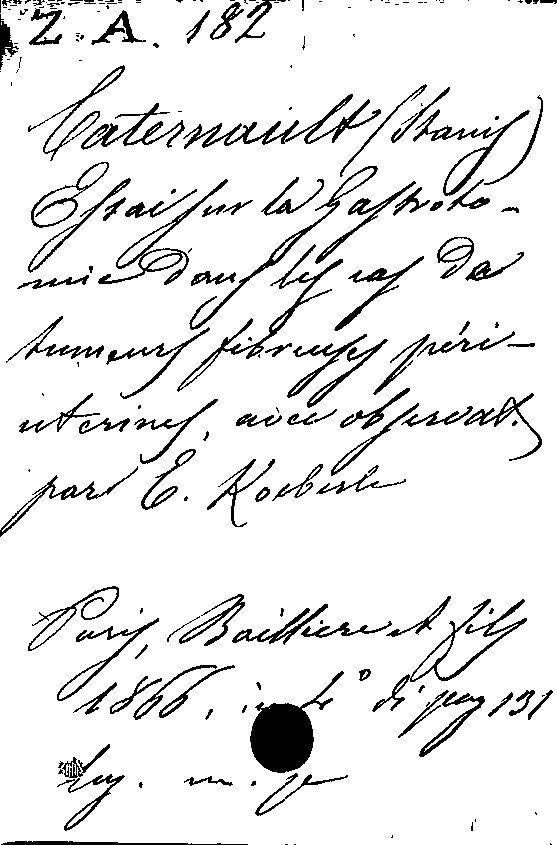 Z. A. 182
Caternault (Stanis)
Essai sur la Gastroto-
mie dans les cas de
tumeurs fibreuses péri-
utérines, avec observat.
par E. Koeberle
Paris, Bailliere et fils
1866, in 4° di pag 131
leg. m. p